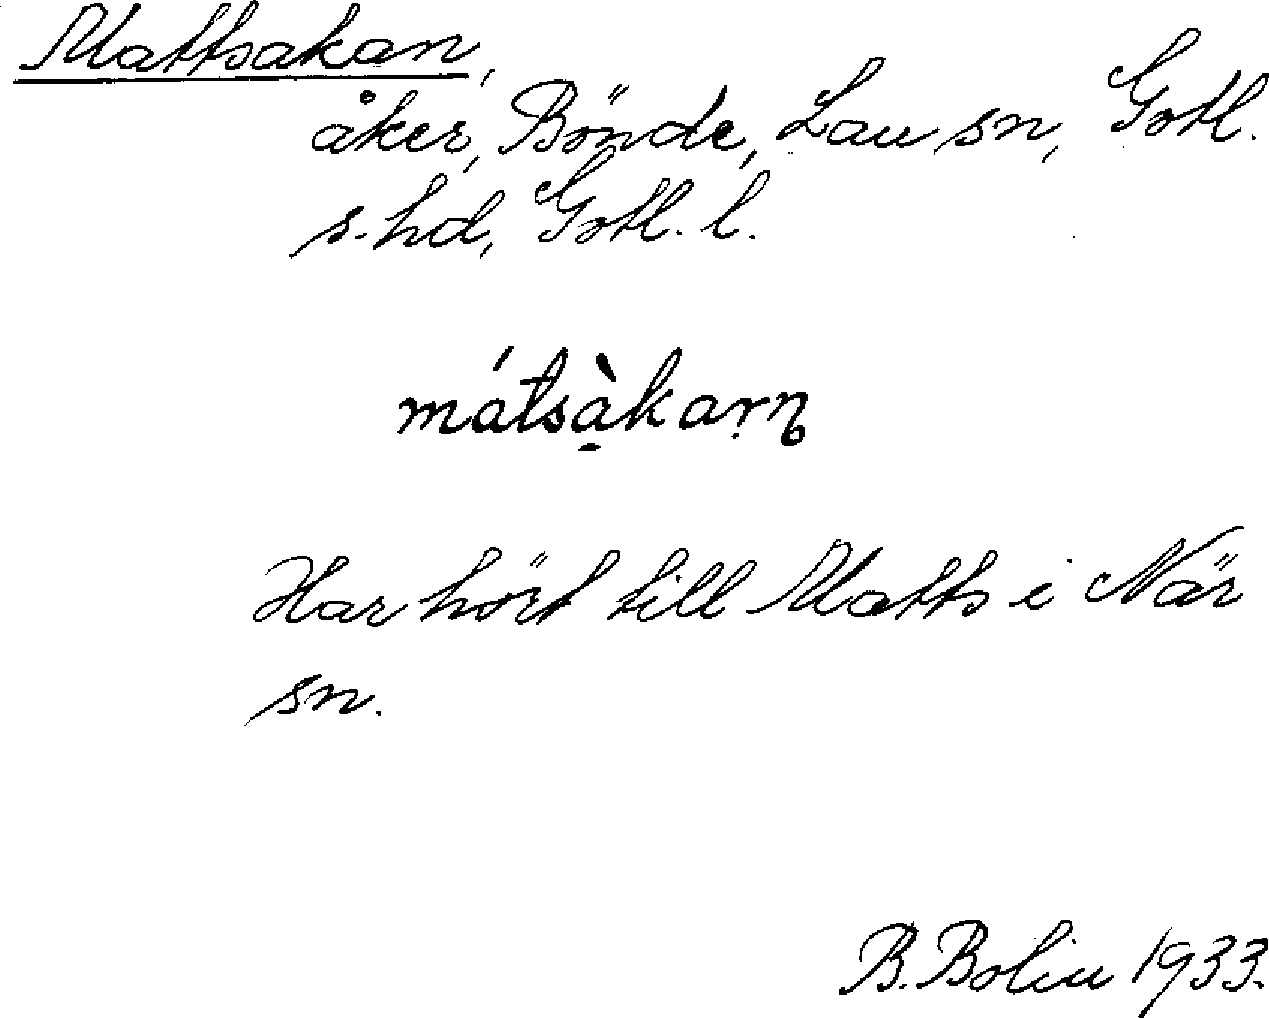 Mattsakan,
åker, Bönde, Lau sn, Gotl.
s. hd, Gotl. l.
mátsà̱kaṛŋ
Har hört till Matts i När
sn.
B. Bolin 1933.